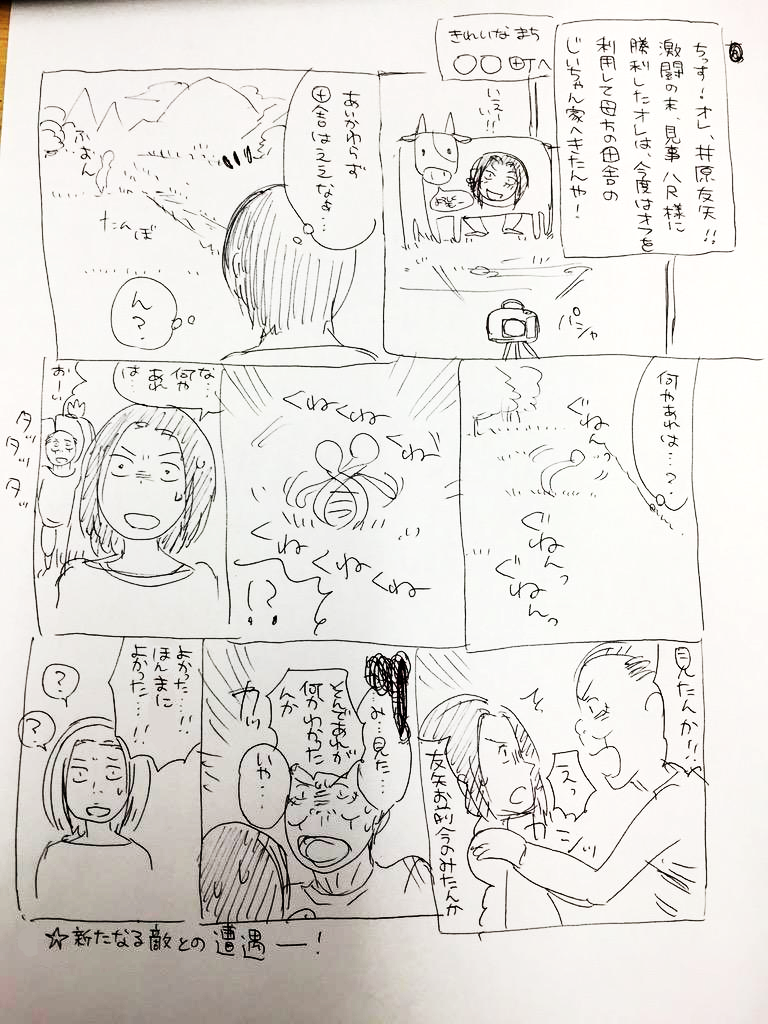 ちっす!オレ、井原友矢!!
激闘の末、見事八尺様に
勝利したオレは、今度はオフを
利用して母ちの田舎の
じいちゃん家へきたんや!
きれいなまち
○○田丁へ
いえーい!!
パシャ
あいかわらず
田舎はええなぁ…
ふぉん
たんぼ
ん?
何やあれは…?
ぐねんっ
ぐねんっ
ぐねんっ
くねくねくね
くねくねくね
!?
な…
何やあれは…
おーい
タッタッタ
見たんか!!
えっ
ガシッ
友矢お前今のみたんか
…み…見た…
そんであれが
何かわかった
んか
いや…
よかった…!!
ほんまに
よかった…!!
?
?
☆新たなる敵との遭遇ー!